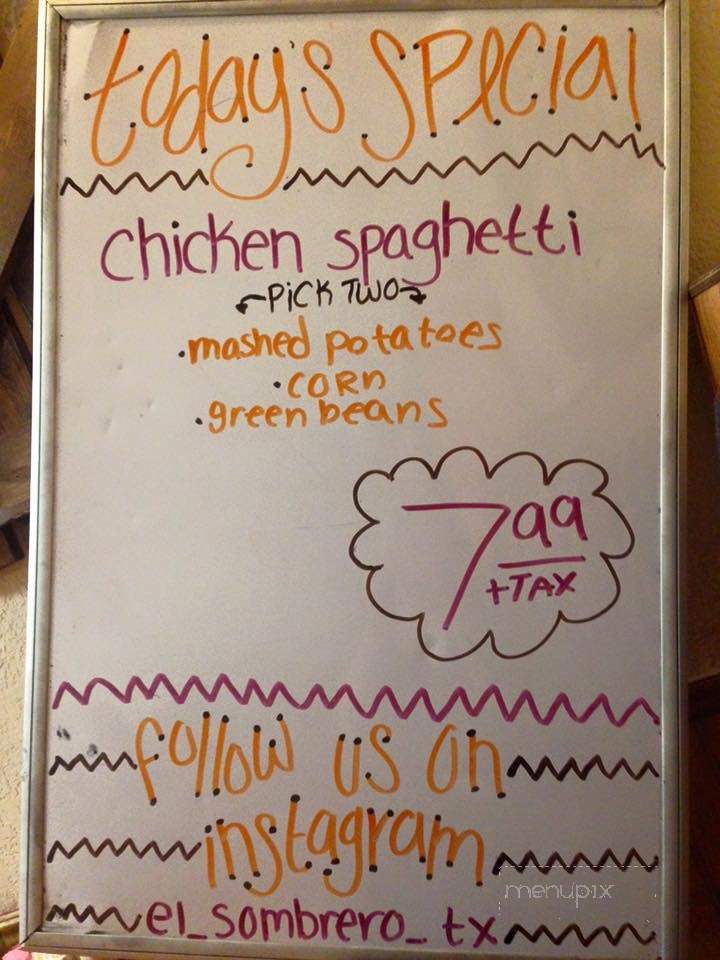 today's special
chicken spaghetti
PiCK TWO
.mashed potatoes
.CORn
.green beans
7 99
+TAX
follow us on
instagram
menupix
el_sombrero_tx